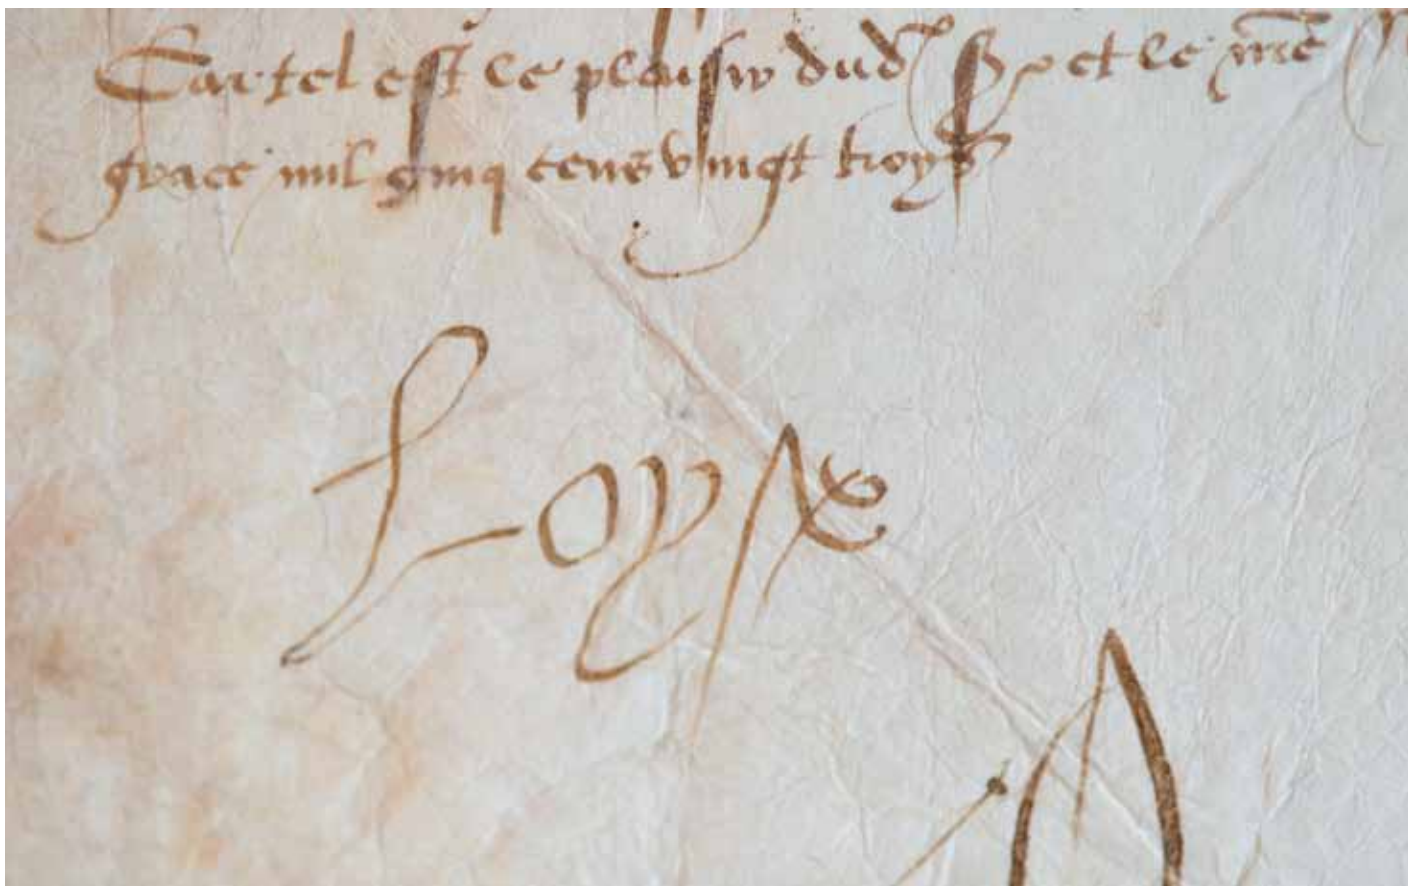 Car tel est le plaisir dud. sr et le nre
grace mil cinq cens vingt troys
Loyse